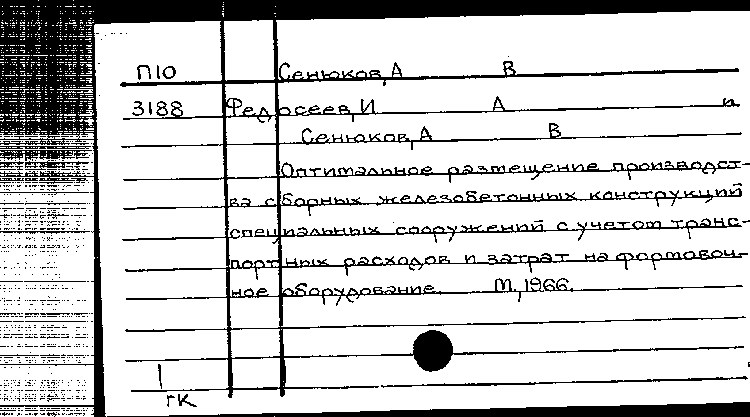 П10 Сенюков, А В
3188 Федосеев, И А и
Сенюков, А В
Оптимальное размещение производст-
ва сборных железобетонных конструкций
специальных сооружений с учетом транс-
портных расходов и затрат на формовоч-
ное оборудование. М, 1966.
гк